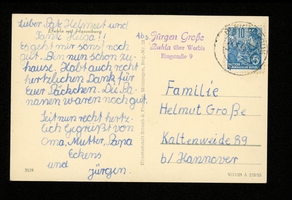 Lieber Pat. Helmut und
Tante Luisa!
Es geht mir sonst noch
gut. Bin nun schon zu-
hause. Habt auch recht
herzlichen Dank für
Euer Päckchen. Die Ba-
nanen waren noch gut.
Seit nun recht herz-
lich gegrüßt von
Oma, Mutter, Papa
und
Jürgen.
Abs.
Jürgen Große
über Worbis
Ringstraße 9
Familie
Helmut Große
Kaltenweide 89
b/Hannover